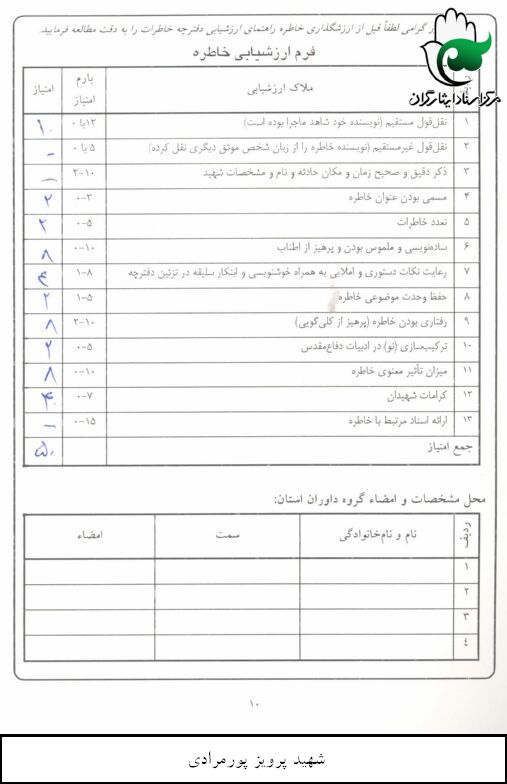 ور گرامی لطفاً قبل از ارزشگذاری خاطره راهنمای ارزشیابی دفترچه خاطرات را به دقت مطالعه فرمایید.
مرکز اسناد ایثارگران
فرم ارزشیابی خاطره
ملاک ارزشیابی بارم امتیاز امتیاز
۱ نقل‌قول مستقیم (نویسنده خود شاهد ماجرا بوده است) ۱۲یا ۰ ۱۰
۲ نقل‌قول غیرمستقیم (نویسنده خاطره را از زبان شخص موثق دیگری نقل کرده) ۵ یا ۰ -
۳ ذکر دقیق و صحیح زمان و مکان حادثه و نام و مشخصات شهید ۲-۱۰ -
۴ مسمی بودن عنوان خاطره ۰-۳ ۲
۵ تعدد خاطرات ۰-۵ ۲
۶ ساده‌نویسی و ملموس بودن و پرهیز از اطناب ۰-۱۰ ۸
۷ رعایت نکات دستوری و املایی به همراه خوشنویسی و ابتکار سلیقه در تزئین دفترچه ۱-۸ ۴
۸ حفظ وحدت موضوعی خاطره ۱-۵ ۲
۹ رفتاری بودن خاطره (پرهیز از کلی‌گویی) ۲-۱۰ ۸
۱۰ ترکیب‌سازی (نو) در ادبیات دفاع‌مقدس ۰-۵ ۲
۱۱ میزان تأثیر معنوی خاطره ۰-۱۰ ۸
۱۲ کرامات شهیدان ۰-۷ ۴
۱۳ ارائه اسناد مرتبط با خاطره ۰-۱۵ -
جمع امتیاز ۵۰
محل مشخصات و امضاء گروه داوران استان:
ردیف نام و نام‌خانوادگی سمت امضاء
۱
۲
۳
۴
۱۰
شهید پرویز پورمرادی